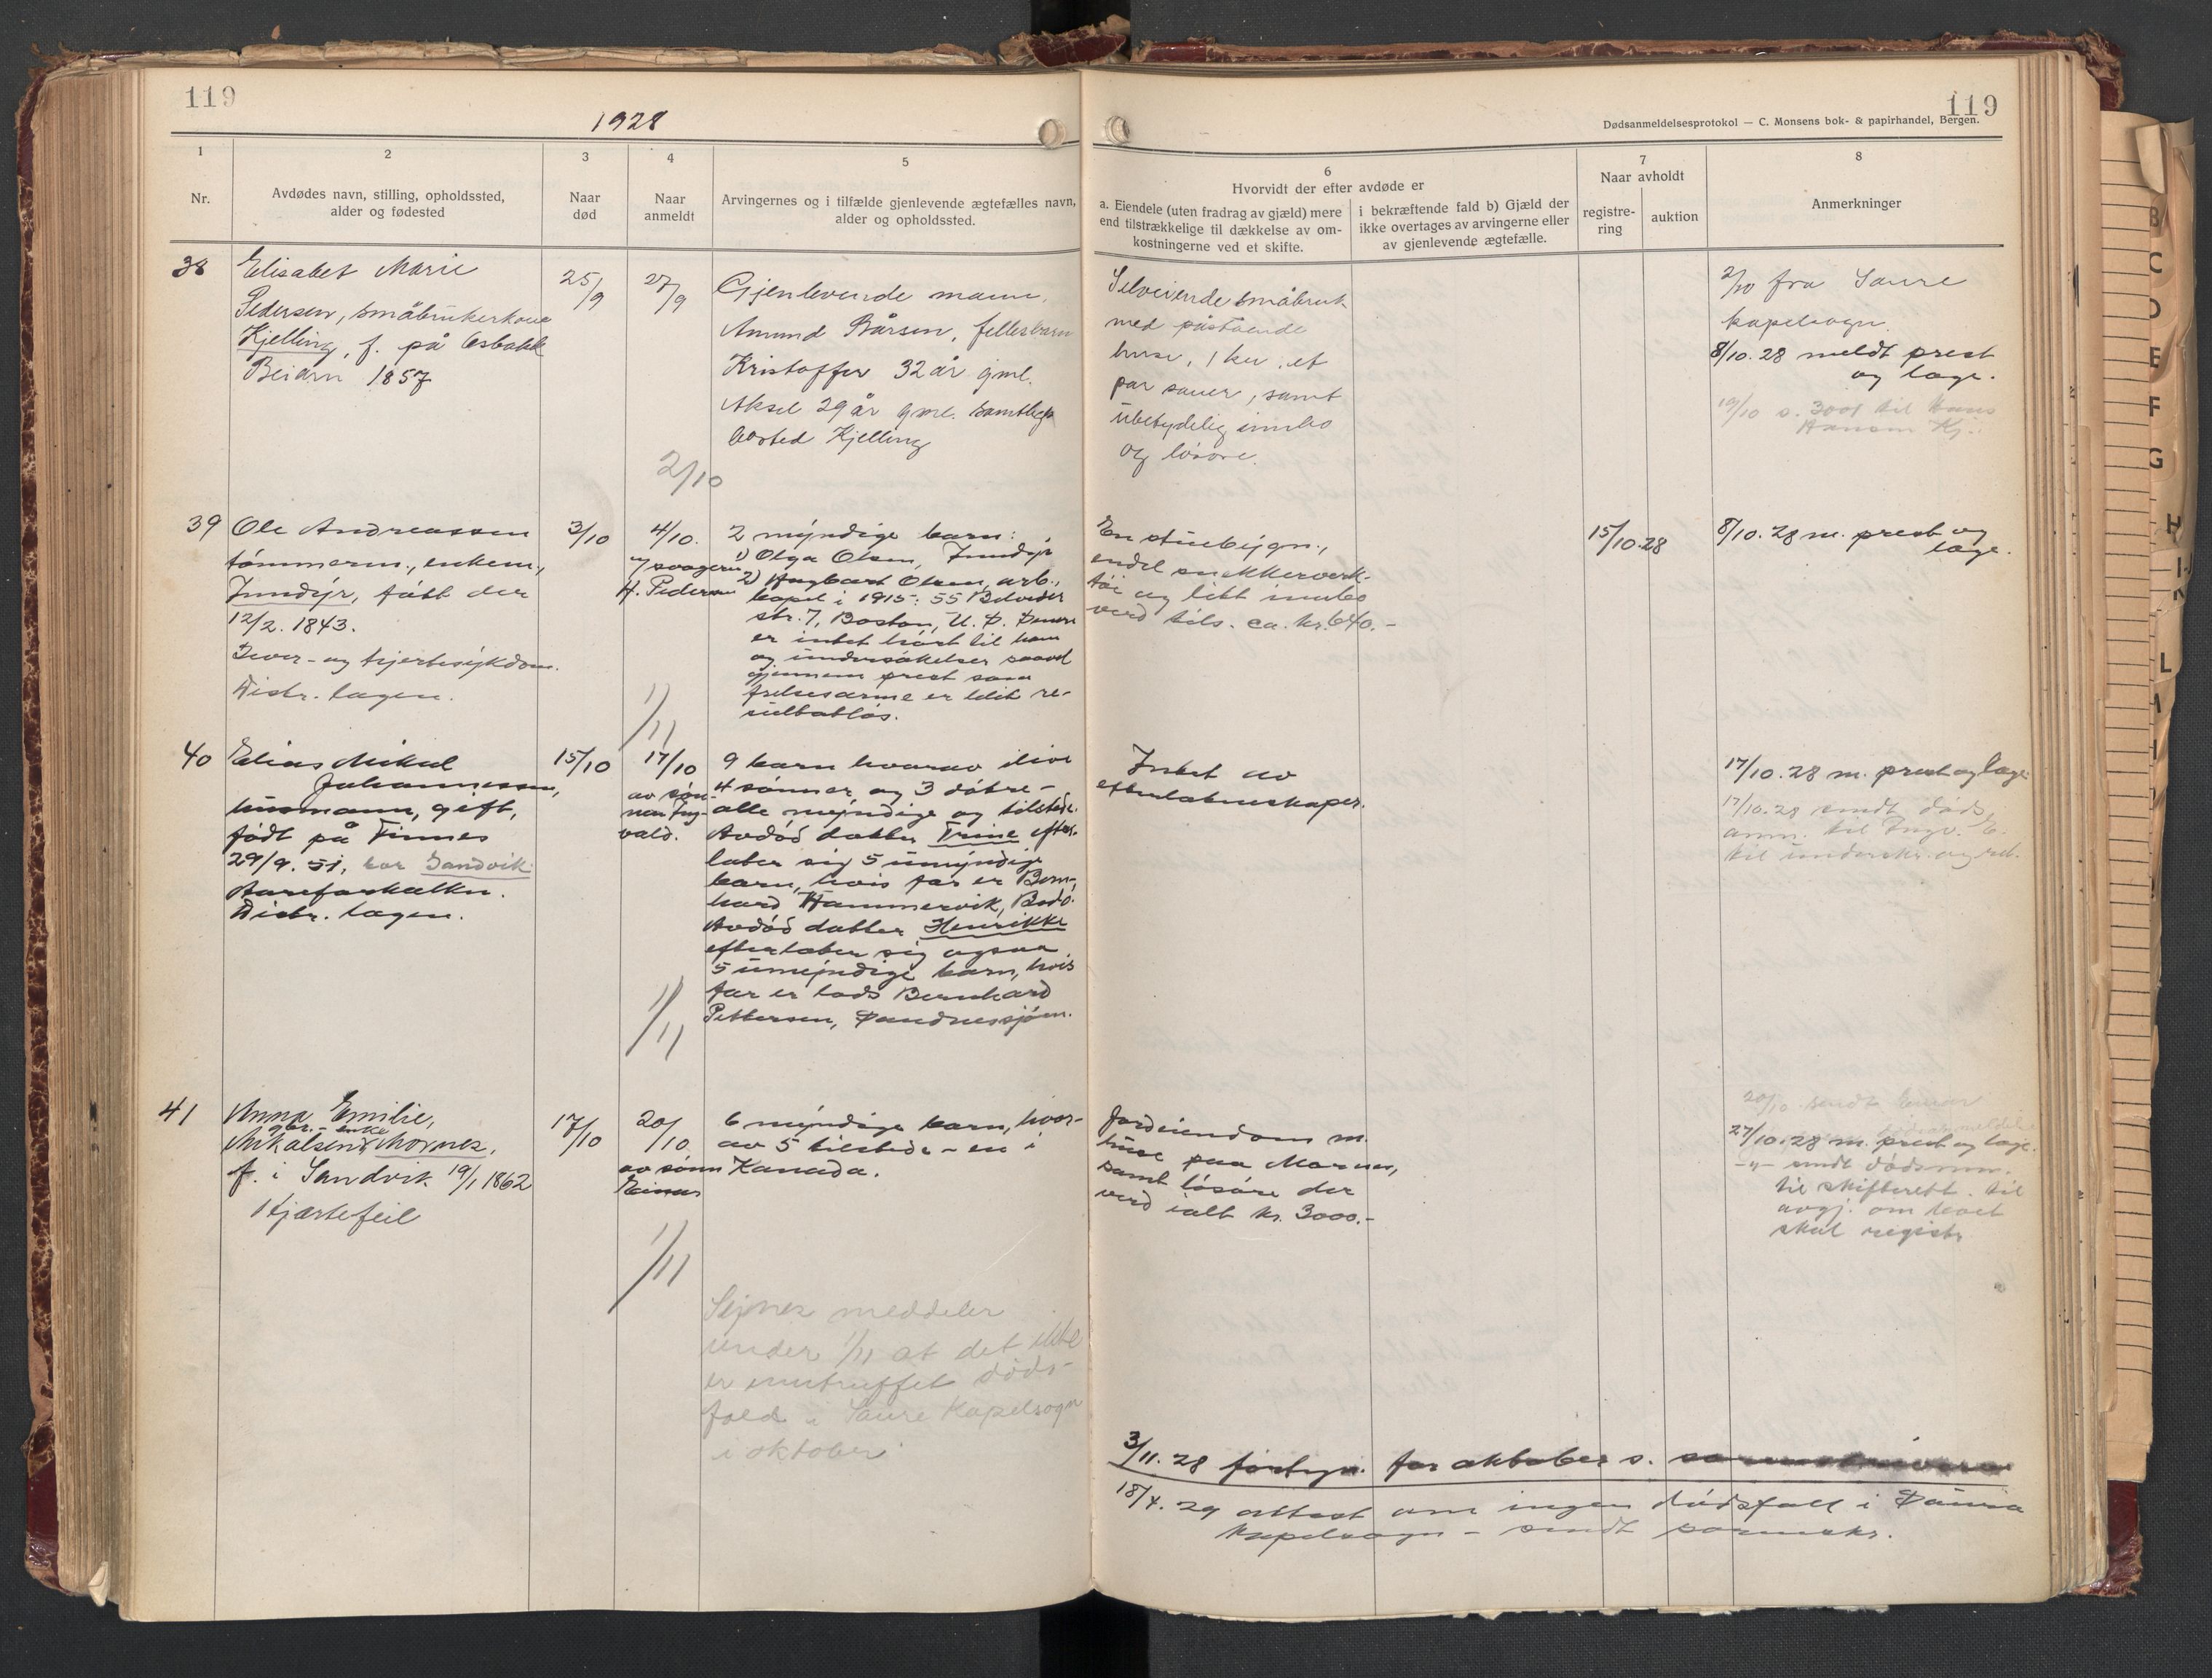 119
1928
119
Dødsanmeldelsesprotokol — C. Monsens bok- & papirhandel, Bergen.
1
Nr.
2
Avdødes navn, stilling, opholdssted,
alder og fødested
3
Naar
død
4
Naar
anmeldt
5
Arvingernes og i tilfælde gjenlevende ægtefælles navn,
alder og opholdssted.
6
Hvorvidt der efter avdøde er
a. Eiendele (uten fradrag av gjæld) mere
end tilstrækkelige til dækkelse av om-
kostningerne ved et skifte.
i bekræftende fald b) Gjæld der
ikke overtages av arvingerne eller
av gjenlevende ægtefælle.
7
Naar avholdt
registre-
ring
auktion
8
Anmerkninger
38
Elisabet Marie
Pedersen, småbrukerkone
Kjelling, f. på Osbakk
Beiarn 1857
25/9
27/9
2/10
Gjenlevende mann,
Amund Bårsen, fellesbarn
Kristoffer 32 år gml.
Aksel 29 år gml. samtlige
bosted Kjelling
Selveiende småbruk
med påstående
huse, 1 ku, et
par sauer, samt
ubetydelig innbo
og løsøre.
2/10 fra Saure
kapelsogn.
8/10. 28 meldt prest
og læge.
19/10 s. 3001 til Hans
39
Ole Andreassen
tømmerm., enkem.,
Inndyr, født der
12/2. 1843.
Lever- og hjertesykdom.
Distr. lægen.
3/10
4/10.
v/ svogeren
H. Pedersen
1/11
2 myndige barn:
1) Olga Olsen, Inndyr
2) Hagbart Olsen, arb.,
bopel i 1915: 55 Belvider
str. 7, Boston, U. S. Senere
er intet hørt til ham
og undersøkelser saavel
gjennem prest som
frelsesarme er blit re-
sultatløs.
En stuebygn.,
endel snekkerverk-
tøi og litt innbo
verd tils. ca. kr. 640.-
15/10.28
8/10. 28 m. prest og
læge.
40
Elias Mikal
Johannessen,
husmann, gift,
født på Finnes
29/9. 51, bor Sandvik
Aareforkalkn.
Distr. lægen.
15/10
17/10
av søn-
nen Ing-
vald.
1/11
9 barn hvorav ilive
4 sønner og 3 døtre -
alle myndige og tilstede.
Avdød datter Trine efter-
later sig 5 umyndige
barn, hvis far er Bern-
hard Hammervik, Bodø.
Avdød datter Henrikke
efterlater sig ogsaa
5 umyndige barn, hvis
far er lods Bernhard
Pettersen, Sandnessjøen.
Intet av
efterlatenskaper.
17/10. 28 m. prest og læge.
17/10. 28 sendt døds
anm. til Ingv. E.
til underskr. og ret.
41
Anna Emilie,
gbr. - enke
Mikalsen, Mornes,
f. i Sandvik 19/1 1862
Hjærtefeil
17/10
20/10
av sønn
Einar
1/11
6 myndige barn, hvor-
av 5 tilstede - en i
Kanada.
Jordeiendom m.
huse paa Mornes,
samt løsøre der
verd ialt kr. 3000.-
20/10. sendt Einar
dødsanmeldelse
27/10. 28 m. prest og læge.
-"- sendt dødsanm.
til skifterett. til
avgj. om boet
skal registr.
meddeler
under 1/11 at det ikke
er inntruffet døds-
fald i Saure Kapelsogn
i oktober
3/11. 28 fortegn. for oktober s.
18/4. 29 attest om ingen dødsfall i Saura
kapelsogn - sendt sorenskr.